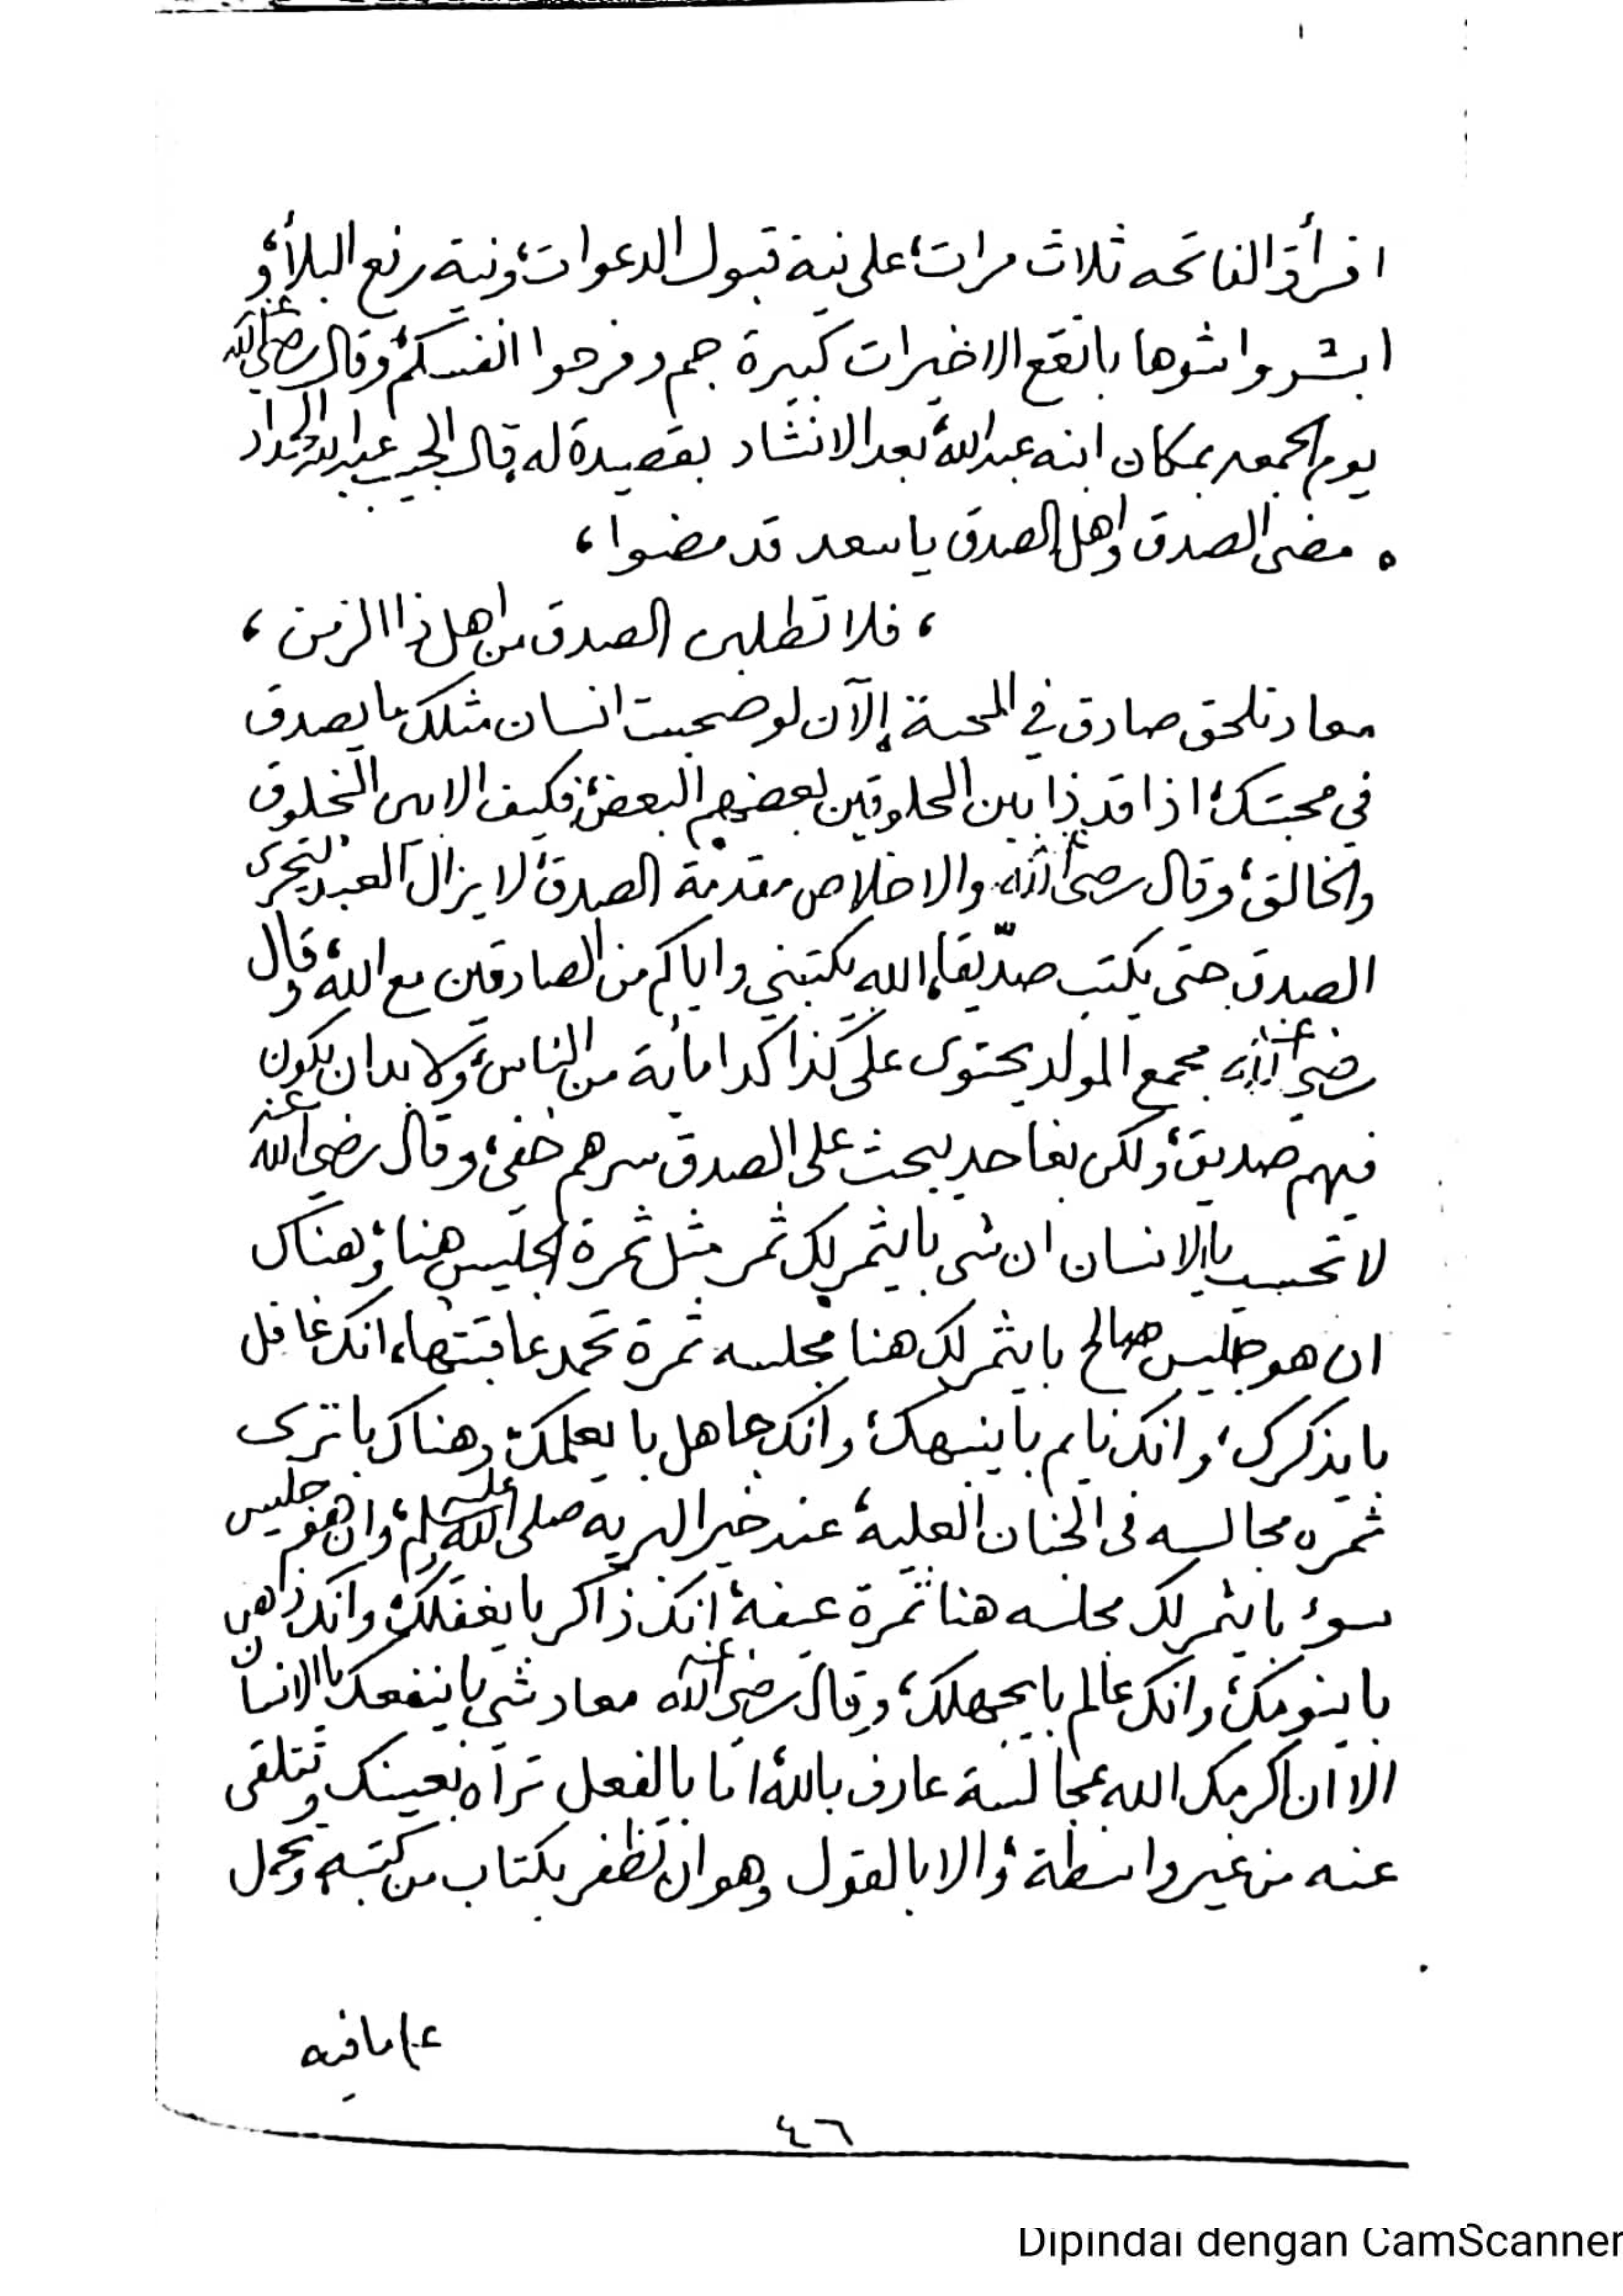 اقرأوا الفاتحه ثلاث مرات، على نية قبول الدعوات، ونية رفع البلأ، و
ابشروا بانقع الاخيرات كبيرة جم وفرحوا انفسكم، وقال رضي الله عنه
يوم الجمعه بمكان ابنه عبدالله، بعد الانشاد بقصيدة له قال الحبيب عبدالله الحداد
ه مضى الصدق واهل الصدق يا سعد قد مضوا ،
، فلا تطلبن الصدق من اهل ذا الزمن ،
معاد تلحق صادق في المحبة إلآن لو صحبت انسان مثلك ما يصدق
في محبتك، اذا قد ذا بين المخلوقين بعضهم البعض، فكيف الا بين المخلوق
والخالق، وقال رضي الله عنه والاخلاص مقدمة الصدق، لا يزال العبد يتحرى
الصدق حتى يكتب صدّيقا، الله يكتبني واياكم من الصادقين مع الله، وقال
رضي الله عنه مجمع المولد يحتوى على كذا كذا مأية من الناس، ولا بد ان يكون
فيهم صديق، ولكن بغا حد يبحث على الصدق سرهم خفي، وقال رضي الله عنه
لا تحسب يا الانسان ان شي بايثمر لك ثمر مثل ثمرة الجليس هنا، وهناك
ان هو جليس صالح بايثمر لك هنا مجلسه ثمرة تحمد عاقبتها، انك غافل
بايذكرك، وانك نايم باينبهك، وانك جاهل بايعلمك، وهناك باترى
ثمره مجالسه فى الجنان العلية، عند خير البريه صلى الله عليه وسلم، وان هو جليس
سوء بايثمر لك مجلسه هنا ثمرة عيفة، انك ذاكر بايغفلك، وانك ذاهن
باينومك، وانك عالم بايجهلك، وقال رضي الله عنه معاد شي باينفعك يا الانسان
الا ان اكرمك الله بمجالسة عارف بالله، اما بالفعل تراه بعينك وتتلقى
عنه من غير واسطة، والا بالقول وهو ان تظفر بكتاب من كتبه، وتعمل
على ما فيه
٤٦
Dipindai dengan CamScanner